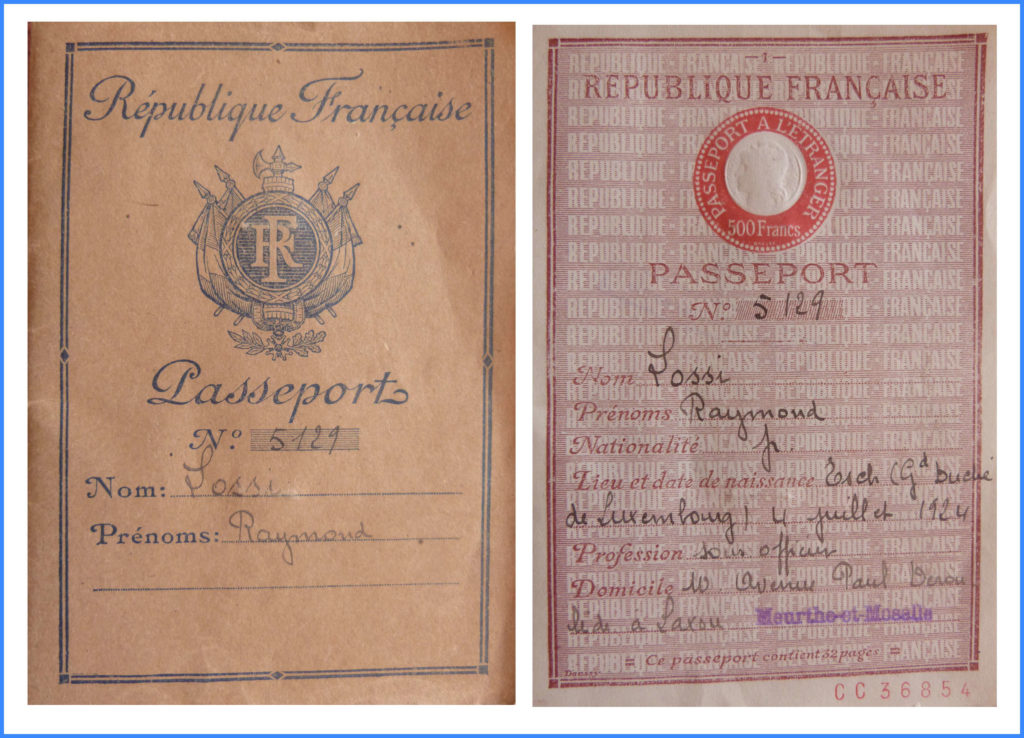 République Française
RF
Passeport
N° 5129
Nom: Lossi
Prénoms: Raymond
—1—
RÉPUBLIQUE FRANÇAISE
PASSEPORT A L'ETRANGER
500 Francs
PASSEPORT
N° 5129
Nom Lossi
Prénoms Raymond
Nationalité fr.
Lieu et date de naissance Esch (Gd Duché
de Luxembourg) 4 juillet 1924
Profession sous officier
Domicile 10 Avenue Paul
à Laxou Meurthe-et-Moselle
= Ce passeport contient 32 pages =
CC36854